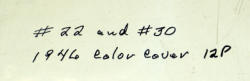 # 22 and #30
1946 color cover 12P